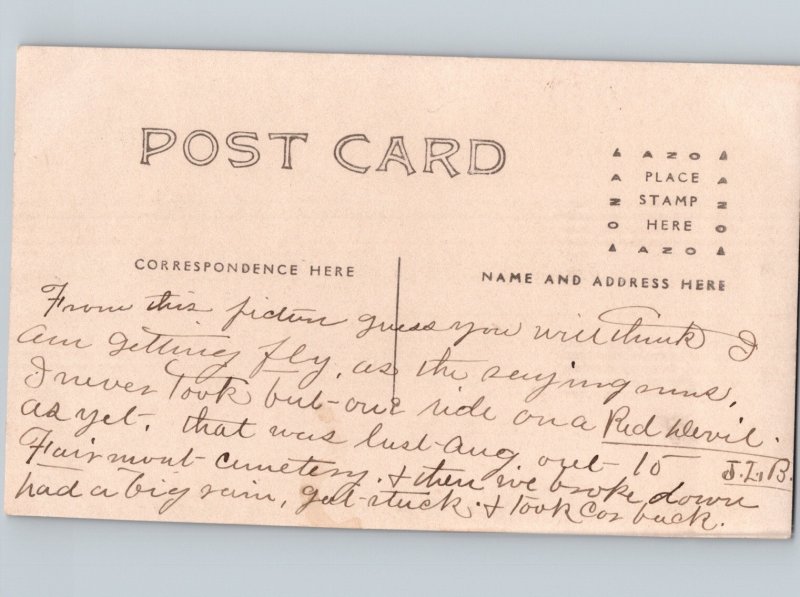 POST CARD
AZO
PLACE
STAMP
HERE
AZO
AZO
AZO
CORRESPONDENCE HERE
NAME AND ADDRESS HERE
From this picture guess you will think I
am getting fly, as the saying runs,
I never Took but one ride on a Red Devil.
as yet. that was last Aug out to
Fairmount cemetery. & then we broke down
had a big rain, got stuck. & Took car back.
J.L.B.